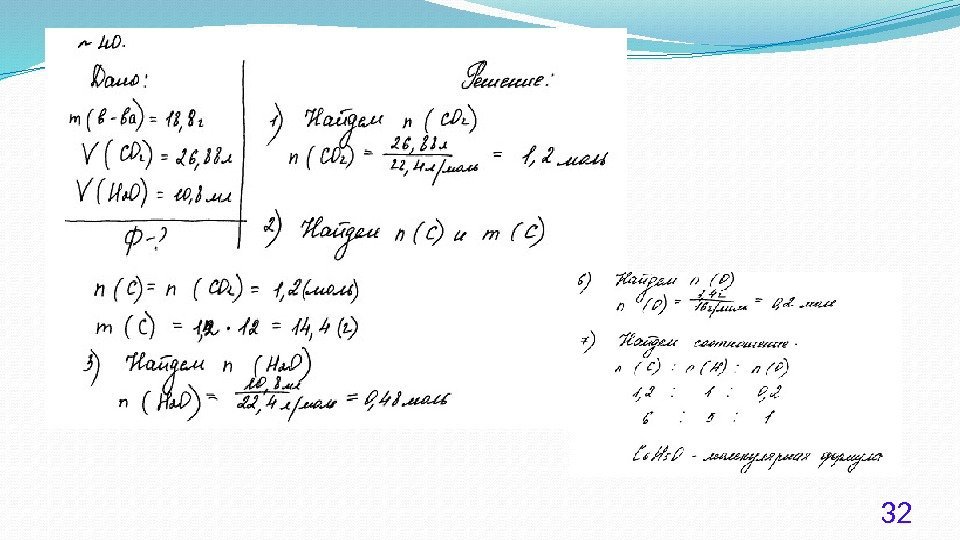 ~ 40.
Дано:
m (в-ва) = 18,8 г
V (CO2) = 26,88 л
V (H2O) = 10,8 мл
Ф-?
Решение:
1) Найдем n (CO2)
n (CO2) = 26,88 л / 22,4 л/моль = 1,2 моль
2) Найдем n (C) и m (C)
n (C) = n (CO2) = 1,2 (моль)
m (C) = 1,2 · 12 = 14,4 (г)
3) Найдем n (H2O)
n (H2O) = 10,8 мл / 22,4 л/моль = 0,48 моль
6) Найдем n (O)
n (O) = 3,4г / 16г/моль = 0,2 моль
7) Найдем соотношение.
n (C) : n (H) : n (O)
1,2 : 1 : 0,2
6 : 5 : 1
C6H5O - молекулярная формула
32